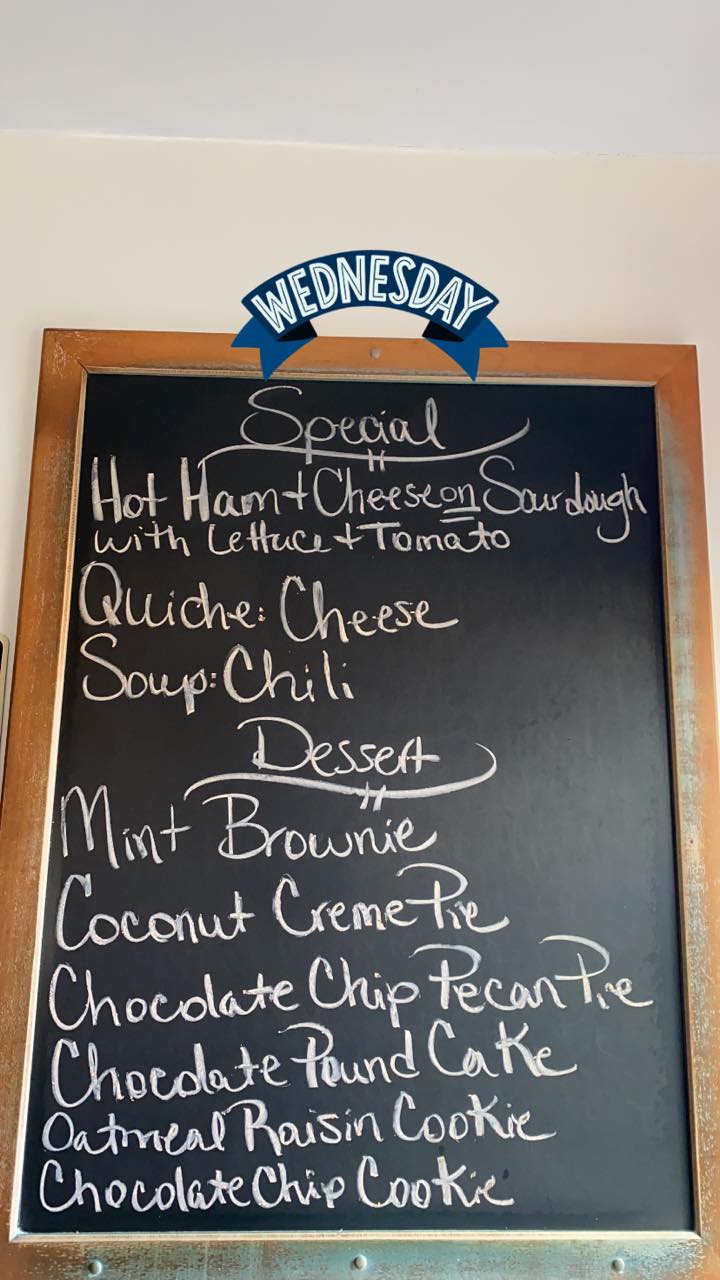 WEDNESDAY
Special
Hot Ham + Cheese on Sourdough
with Lettuce + Tomato
Quiche: Cheese
Soup: Chili
Dessert
Mint Brownie
Coconut Creme Pie
Chocolate Chip Pecan Pie
Chocolate Pound Cake
Oatmeal Raisin Cookie
Chocolate Chip Cookie